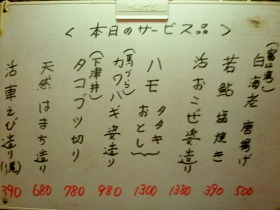 <本日のサービス品>
(富山湾)
白海老 唐揚げ 500
若鮎 塩焼き 390
活おこぜ姿造り 1380
ハモ タタキ おとし 1300
(馬づら)
カワハギ姿造り 980
(下津井)
タコブツ切り 780
天然はまち造り 680
活車えび造り(1尾) 390